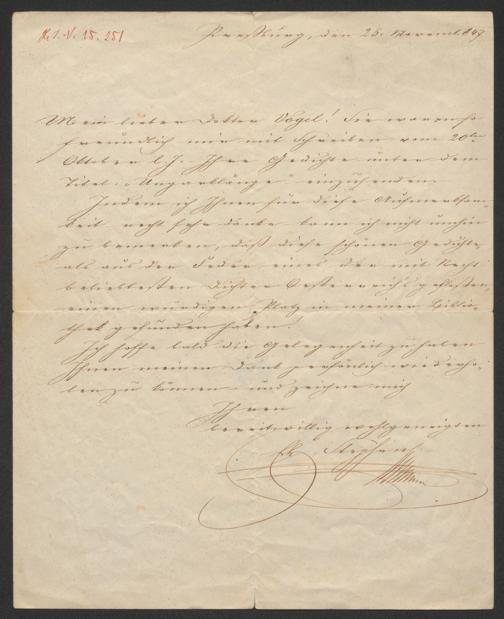 K.I.-V. 15.251
Pressburg, den 25. November 849
Mein lieber Doktor Vogel! Sie waren so
freundlich mir mit Schreiben vom 20ten
Oktober l. J. Ihre Gedichte unter dem
Titel: „Ungarklänge" einzusenden.
Indem ich Ihnen für diese Aufmerksam-
keit recht sehr danke kann ich nicht umhin
zu bemerken, daß diese schönen Gedichte
als aus der Feder eines der mit Recht
beliebtesten Dichter Oesterreichs geflossen,
einen würdigen Platz in meiner Biblio-
thek gefunden haben.
Ich hoffe bald die Gelegenheit zu haben
Ihnen meinen Dank persönlich wiederho-
len zu können und zeichne mich
Ihren
bereitwillig wohlgeneigten
Stephan